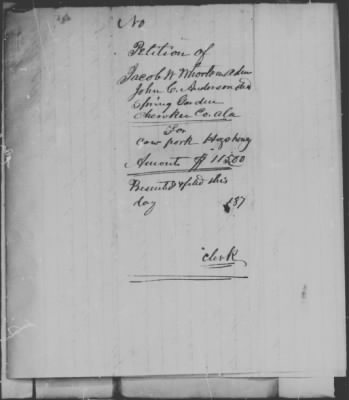 No
Petition of
Jacob W Whorton adm
John C. Anderson decd
Spring Garden
Cherokee Co. Ala
For
Cow pork Hogs
Amount $ 115.00
Presented & filed this
day 187
clerk